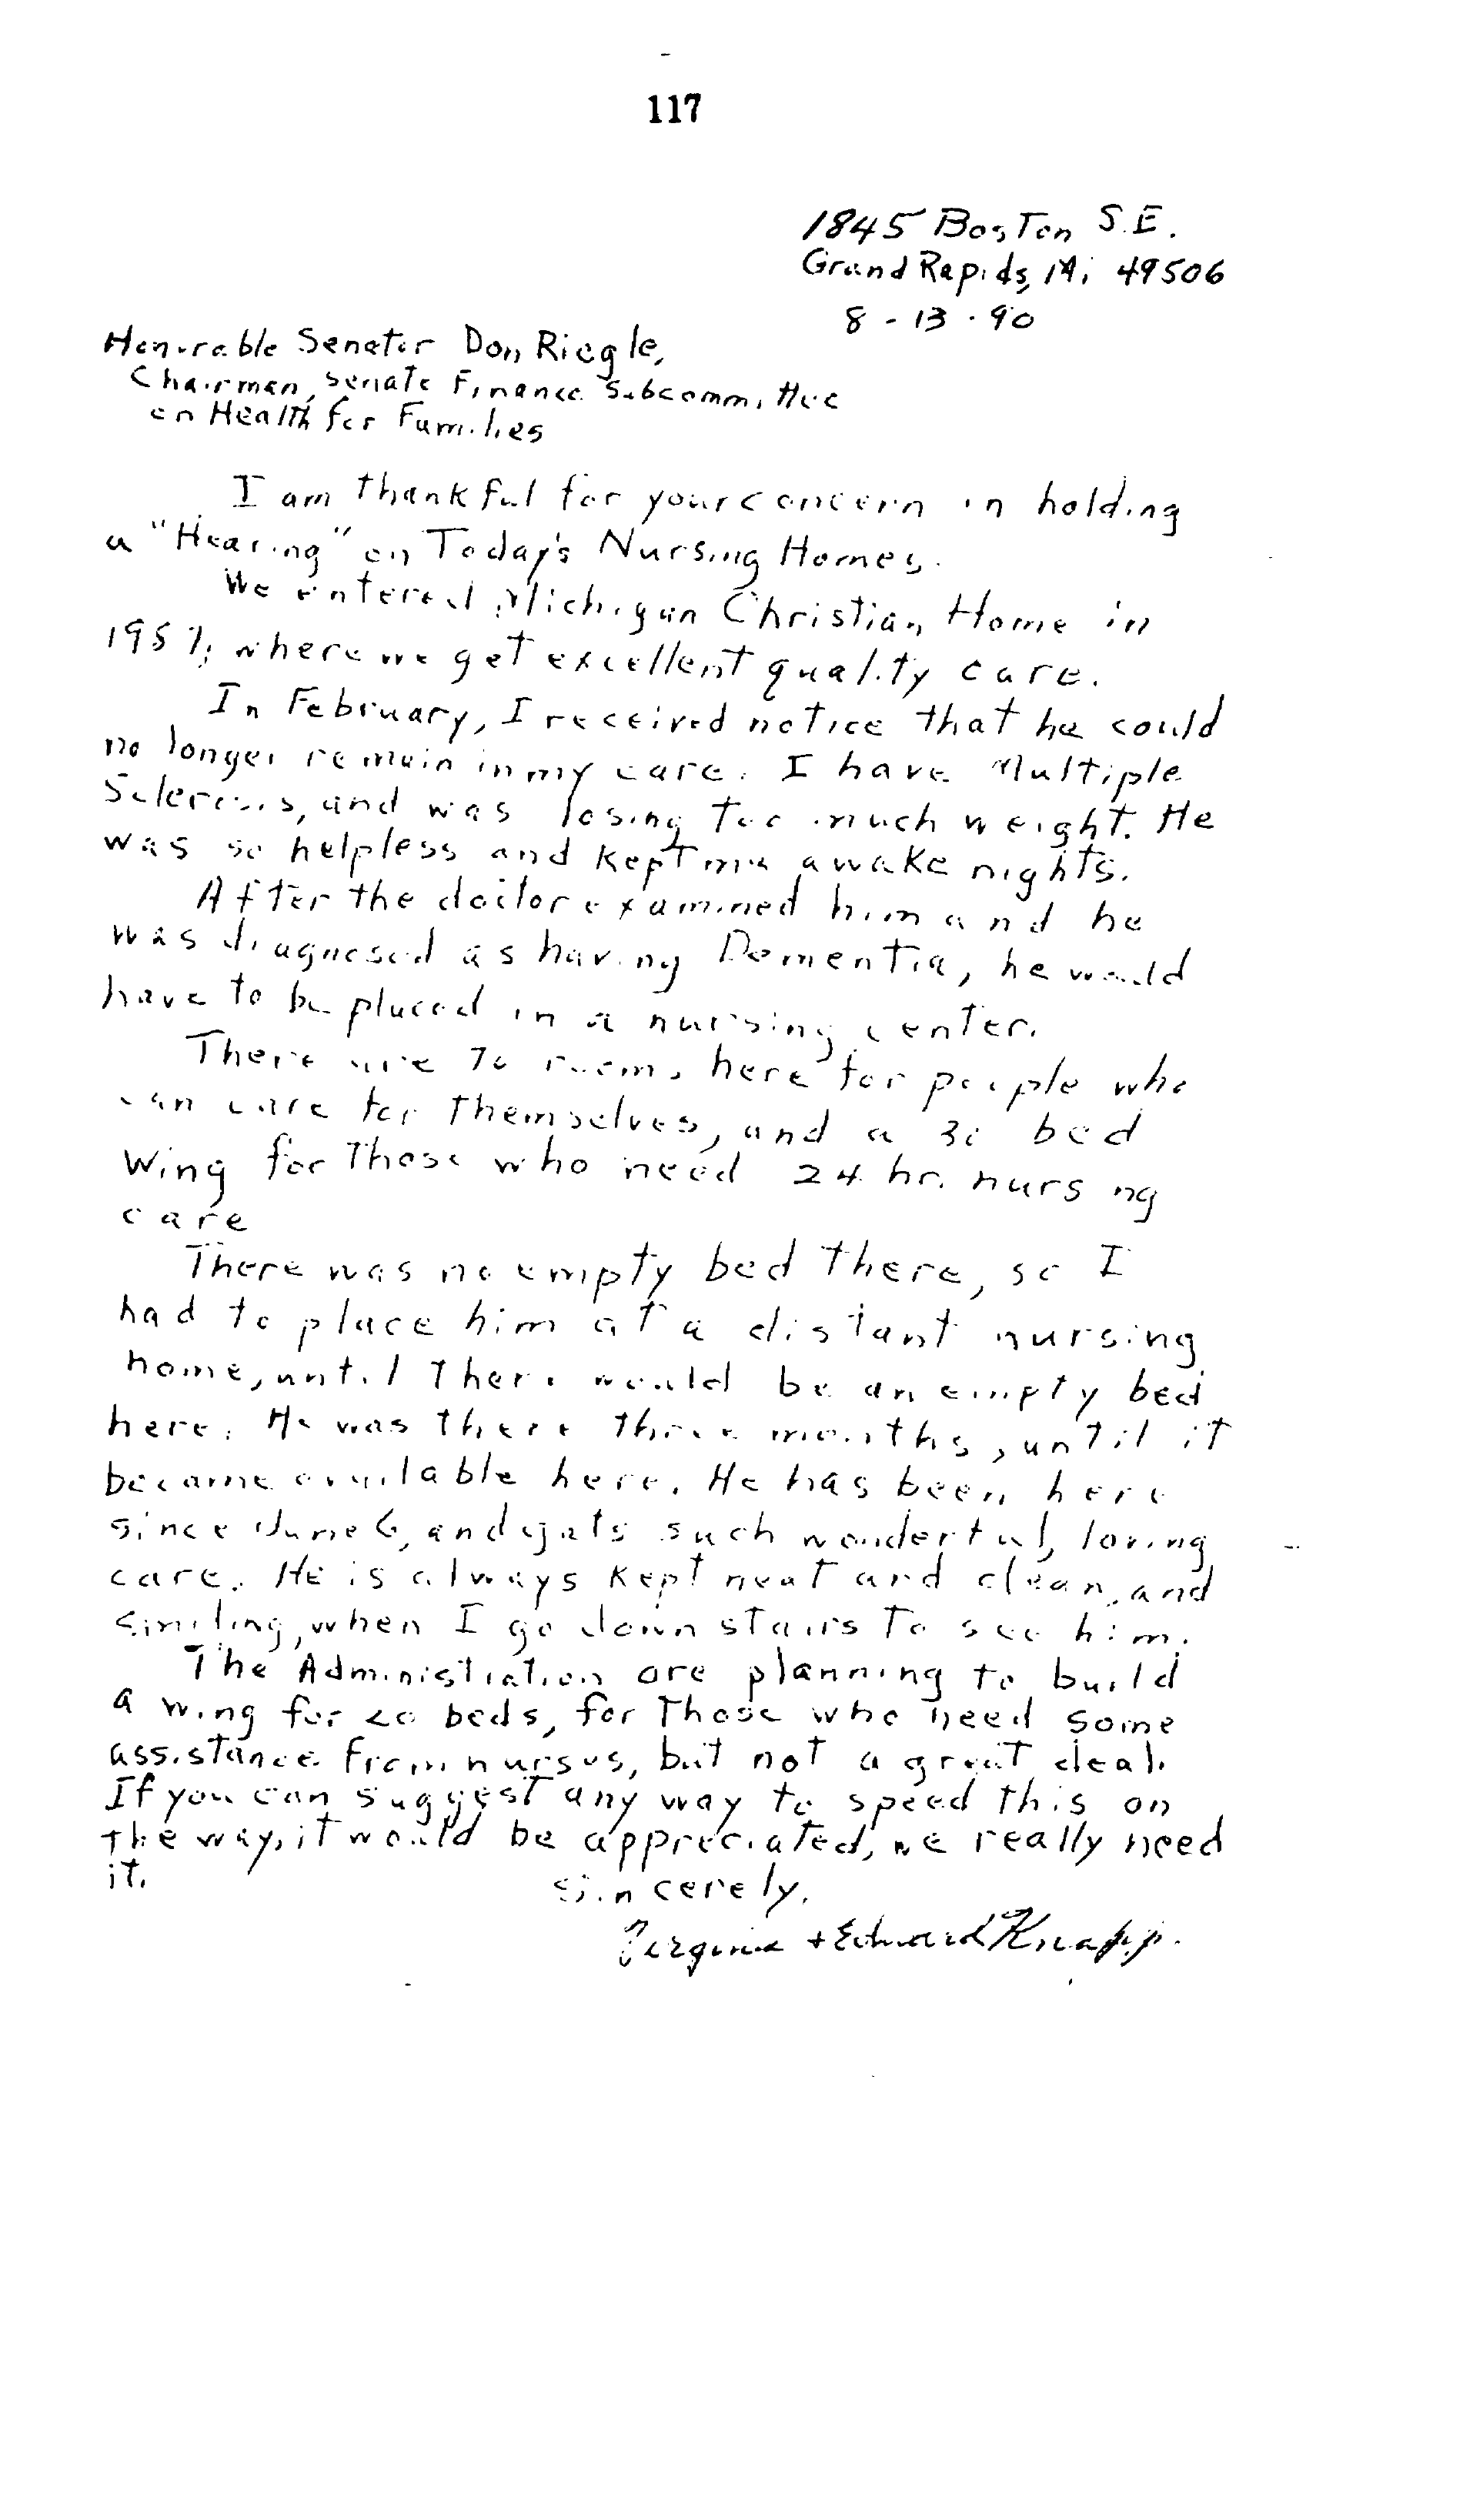 117
1845 Boston S.E.
Grand Rapids, Mi 49506
8 - 13 - 90
Honorable Senator Don Riegle,
Chairman, Senate Finance Subcommittee
on Health for Families
I am thankful for your concern in holding
a "Hearing" on Today's Nursing Homes.
We entered Michigan Christian Home in
where we get excellent quality care.
In February, I received notice that he could
no longer remain in my care. I have Multiple
Sclerosis, and was losing too much weight. He
was so helpless and kept me awake nights.
After the doctor examined him and he
was diagnosed as having Dementia, he would
have to be placed in a nursing center.
There are 70 rooms here for people who
can care for themselves, and a 30 bed
Wing for Those who need 24 hr. nursing
care
There was no empty bed there, so I
had to place him at a distant nursing
home, until There would be an empty bed
here. He was there three months, until it
became available here. He has been here
since June 6, and gets such wonderful, loving
care. He is always kept neat and clean, and
smiling, when I go down stairs to see him.
The Administration are planning to build
a wing for 20 beds, for Those who need some
assistance from nurses, but not a great deal.
If you can suggest any way to speed this on
the way, it would be appreciated, we really need
it.
Sincerely,
Virginia + Edward Knapp.